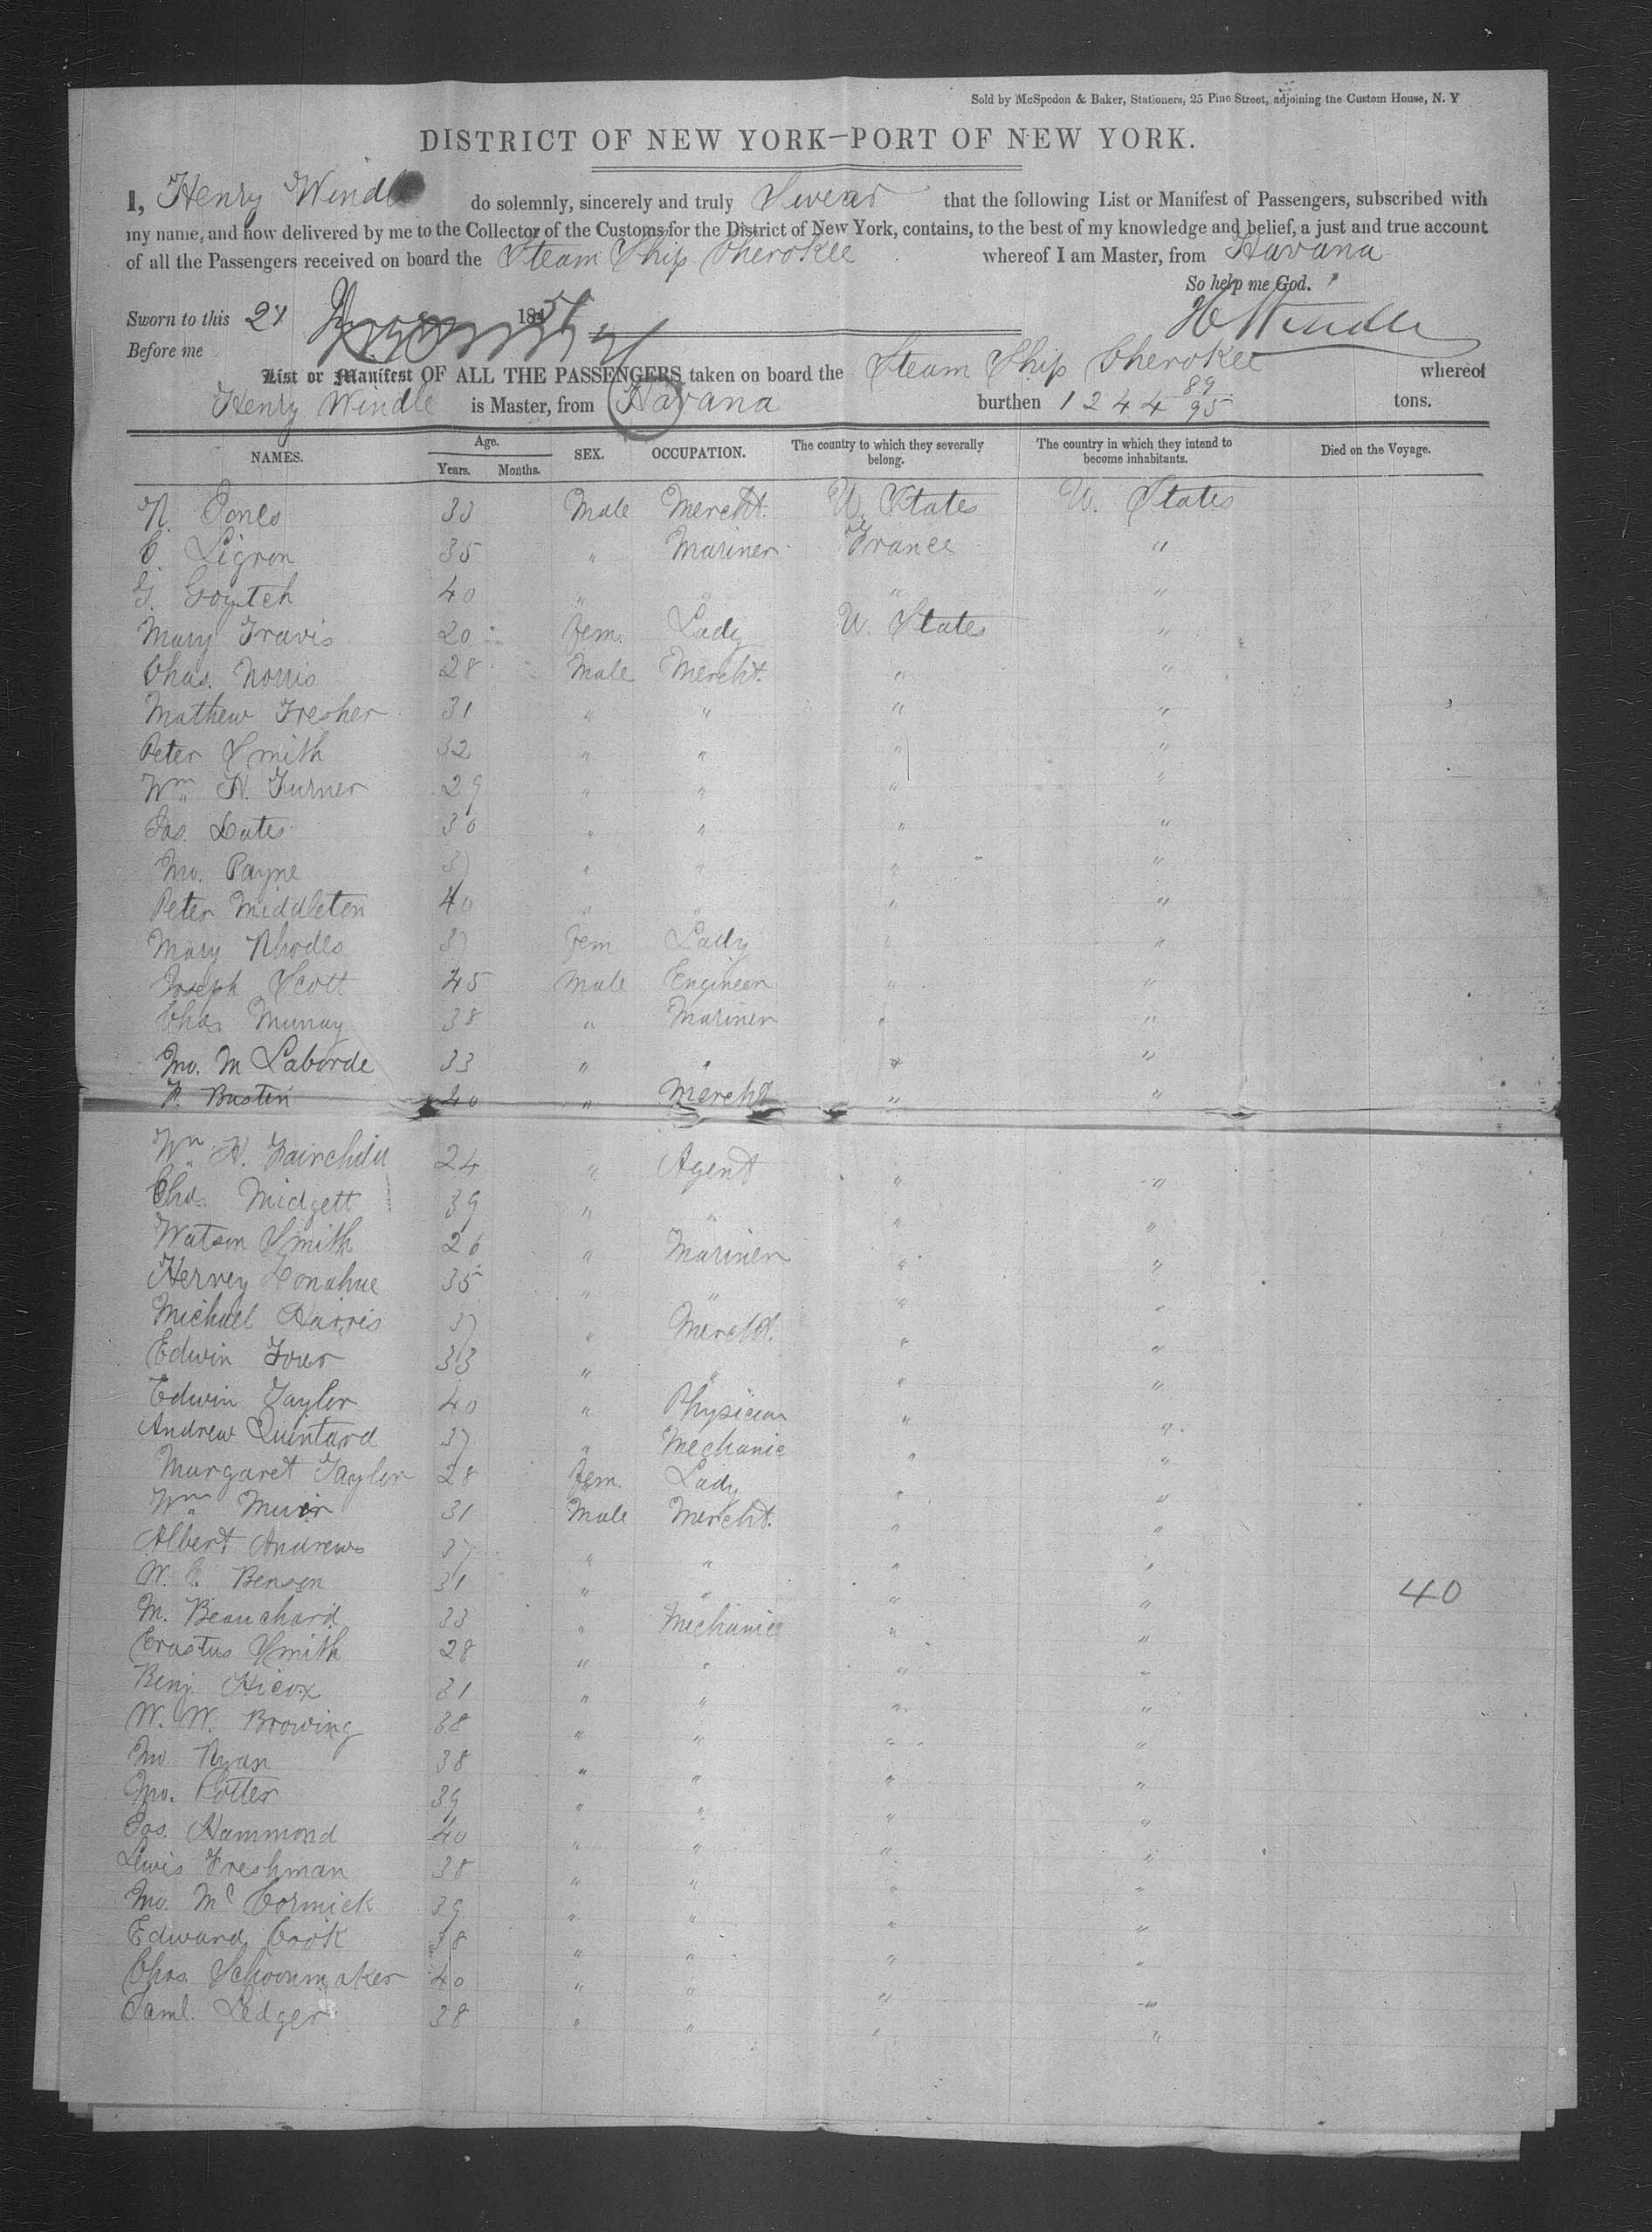 Sold by McSpedon & Baker, Stationers, 25 Pine Street, adjoining the Custom House, N. Y
DISTRICT OF NEW YORK—PORT OF NEW YORK.
I, Henry Windle do solemnly, sincerely and truly Swear that the following List or Manifest of Passengers, subscribed with
my name, and now delivered by me to the Collector of the Customs for the District of New York, contains, to the best of my knowledge and belief, a just and true account
of all the Passengers received on board the Steam Ship Cherokee whereof I am Master, from Havana
So help me God.
Sworn to this 27 185 H Windle
Before me
List or Manifest OF ALL THE PASSENGERS taken on board the Steam Ship Cherokee whereof
Henry Windle is Master, from Havana burthen 1244 89/95 tons.
NAMES. Age. Years. Months. SEX. OCCUPATION. The country to which they severally belong. The country in which they intend to become inhabitants. Died on the Voyage.
N. Jones 33 Male Mercht. U. States U. States
C. Ligron 35 " Mariner France "
G. Goytch 40 " " " "
Mary Travis 20 Fem. Lady U. States "
Chas. Norris 28 Male Mercht. " "
Mathew Fresher 31 " " " "
Peter Smith 32 " " " "
Wm H. Turner 29 " " " "
Jas. Bates 30 " " " "
Jno. Payne 37 " " " "
Peter Middleton 40 " " " "
Mary Rhodes 37 Fem Lady " "
Joseph Scott 45 Male Engineer " "
Chas. Murray 38 " Mariner " "
Jno. M Laborde 33 " " " "
F. Bustin 40 " Mercht " "
Wm H. Fairchild 24 " Agent " "
Chs. Midgett 39 " " " "
Watson Smith 26 " Mariner " "
Hervey Donahue 35 " " " "
Michael Harris 37 " Mercht. " "
Edwin 33 " " " "
Edwin Taylor 40 " Physician " "
Andrew Quintard 37 " Mechanic " "
Margaret Taylor 28 Fem. Lady " "
Wm Muir 31 Male Mercht. " "
Albert Andrews 37 " " " "
W. Benson 31 " " " " 40
M. Beauchard 33 " Mechanic " "
Erastus Smith 28 " " " "
Benj. Hicox 31 " " " "
W. W. Browing 38 " " " "
Jno. Ryan 38 " " " "
Jno. Potter 39 " " " "
Jas. Hammond 40 " " " "
Lewis Freshman 38 " " " "
Jno. Mc Cormick 39 " " " "
Edward Cook 38 " " " "
Chas. Schoonmaker 40 " " " "
Saml. Ledger 38 " " " "